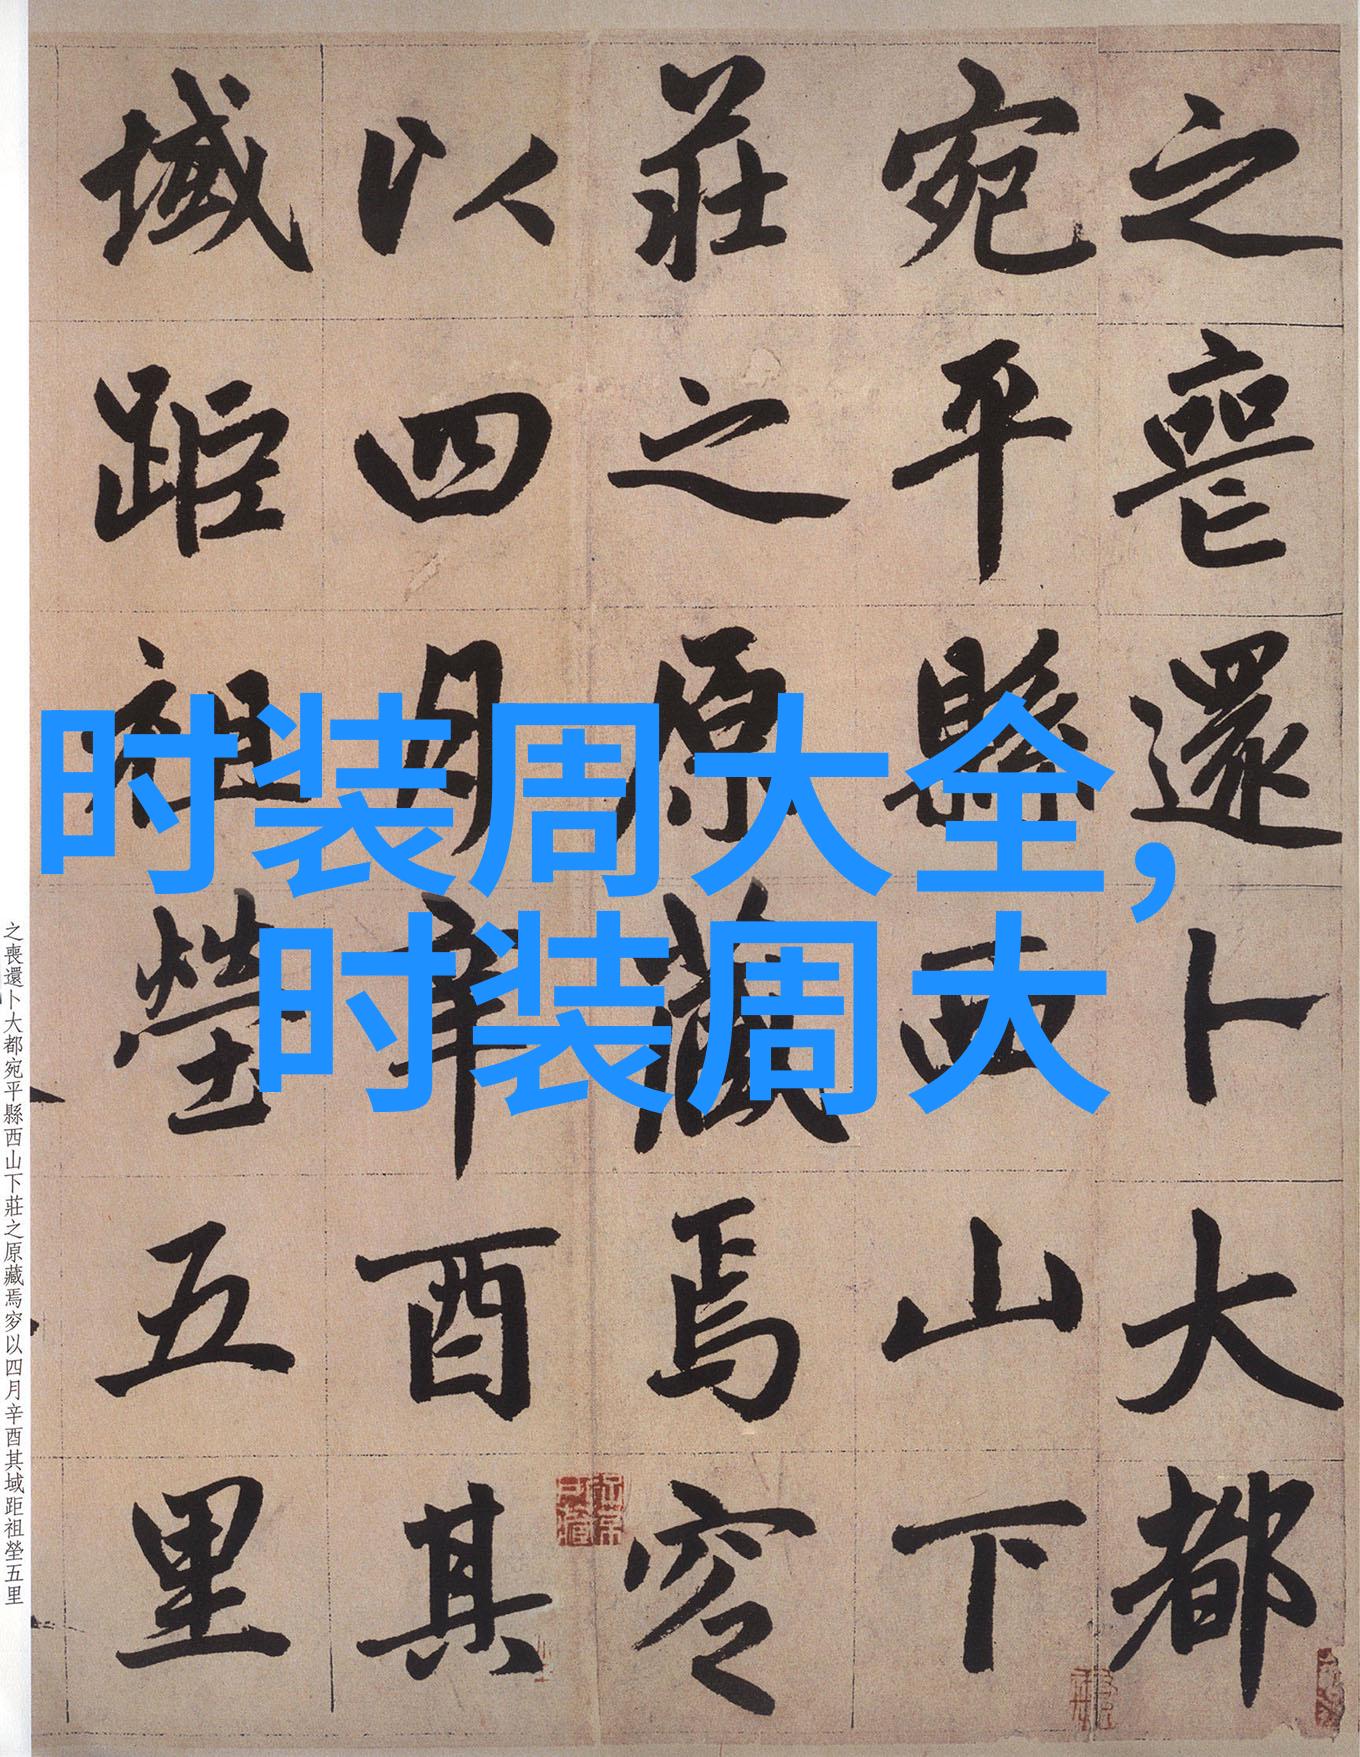 之喪還卜大都
宛平縣西山下
莊之原藏焉窆
以四月辛酉其
域距祖塋五里
时装周大全，
时装周大
之喪還卜大都宛平縣西山下莊之原藏焉窆以四月辛酉其域距祖塋五里